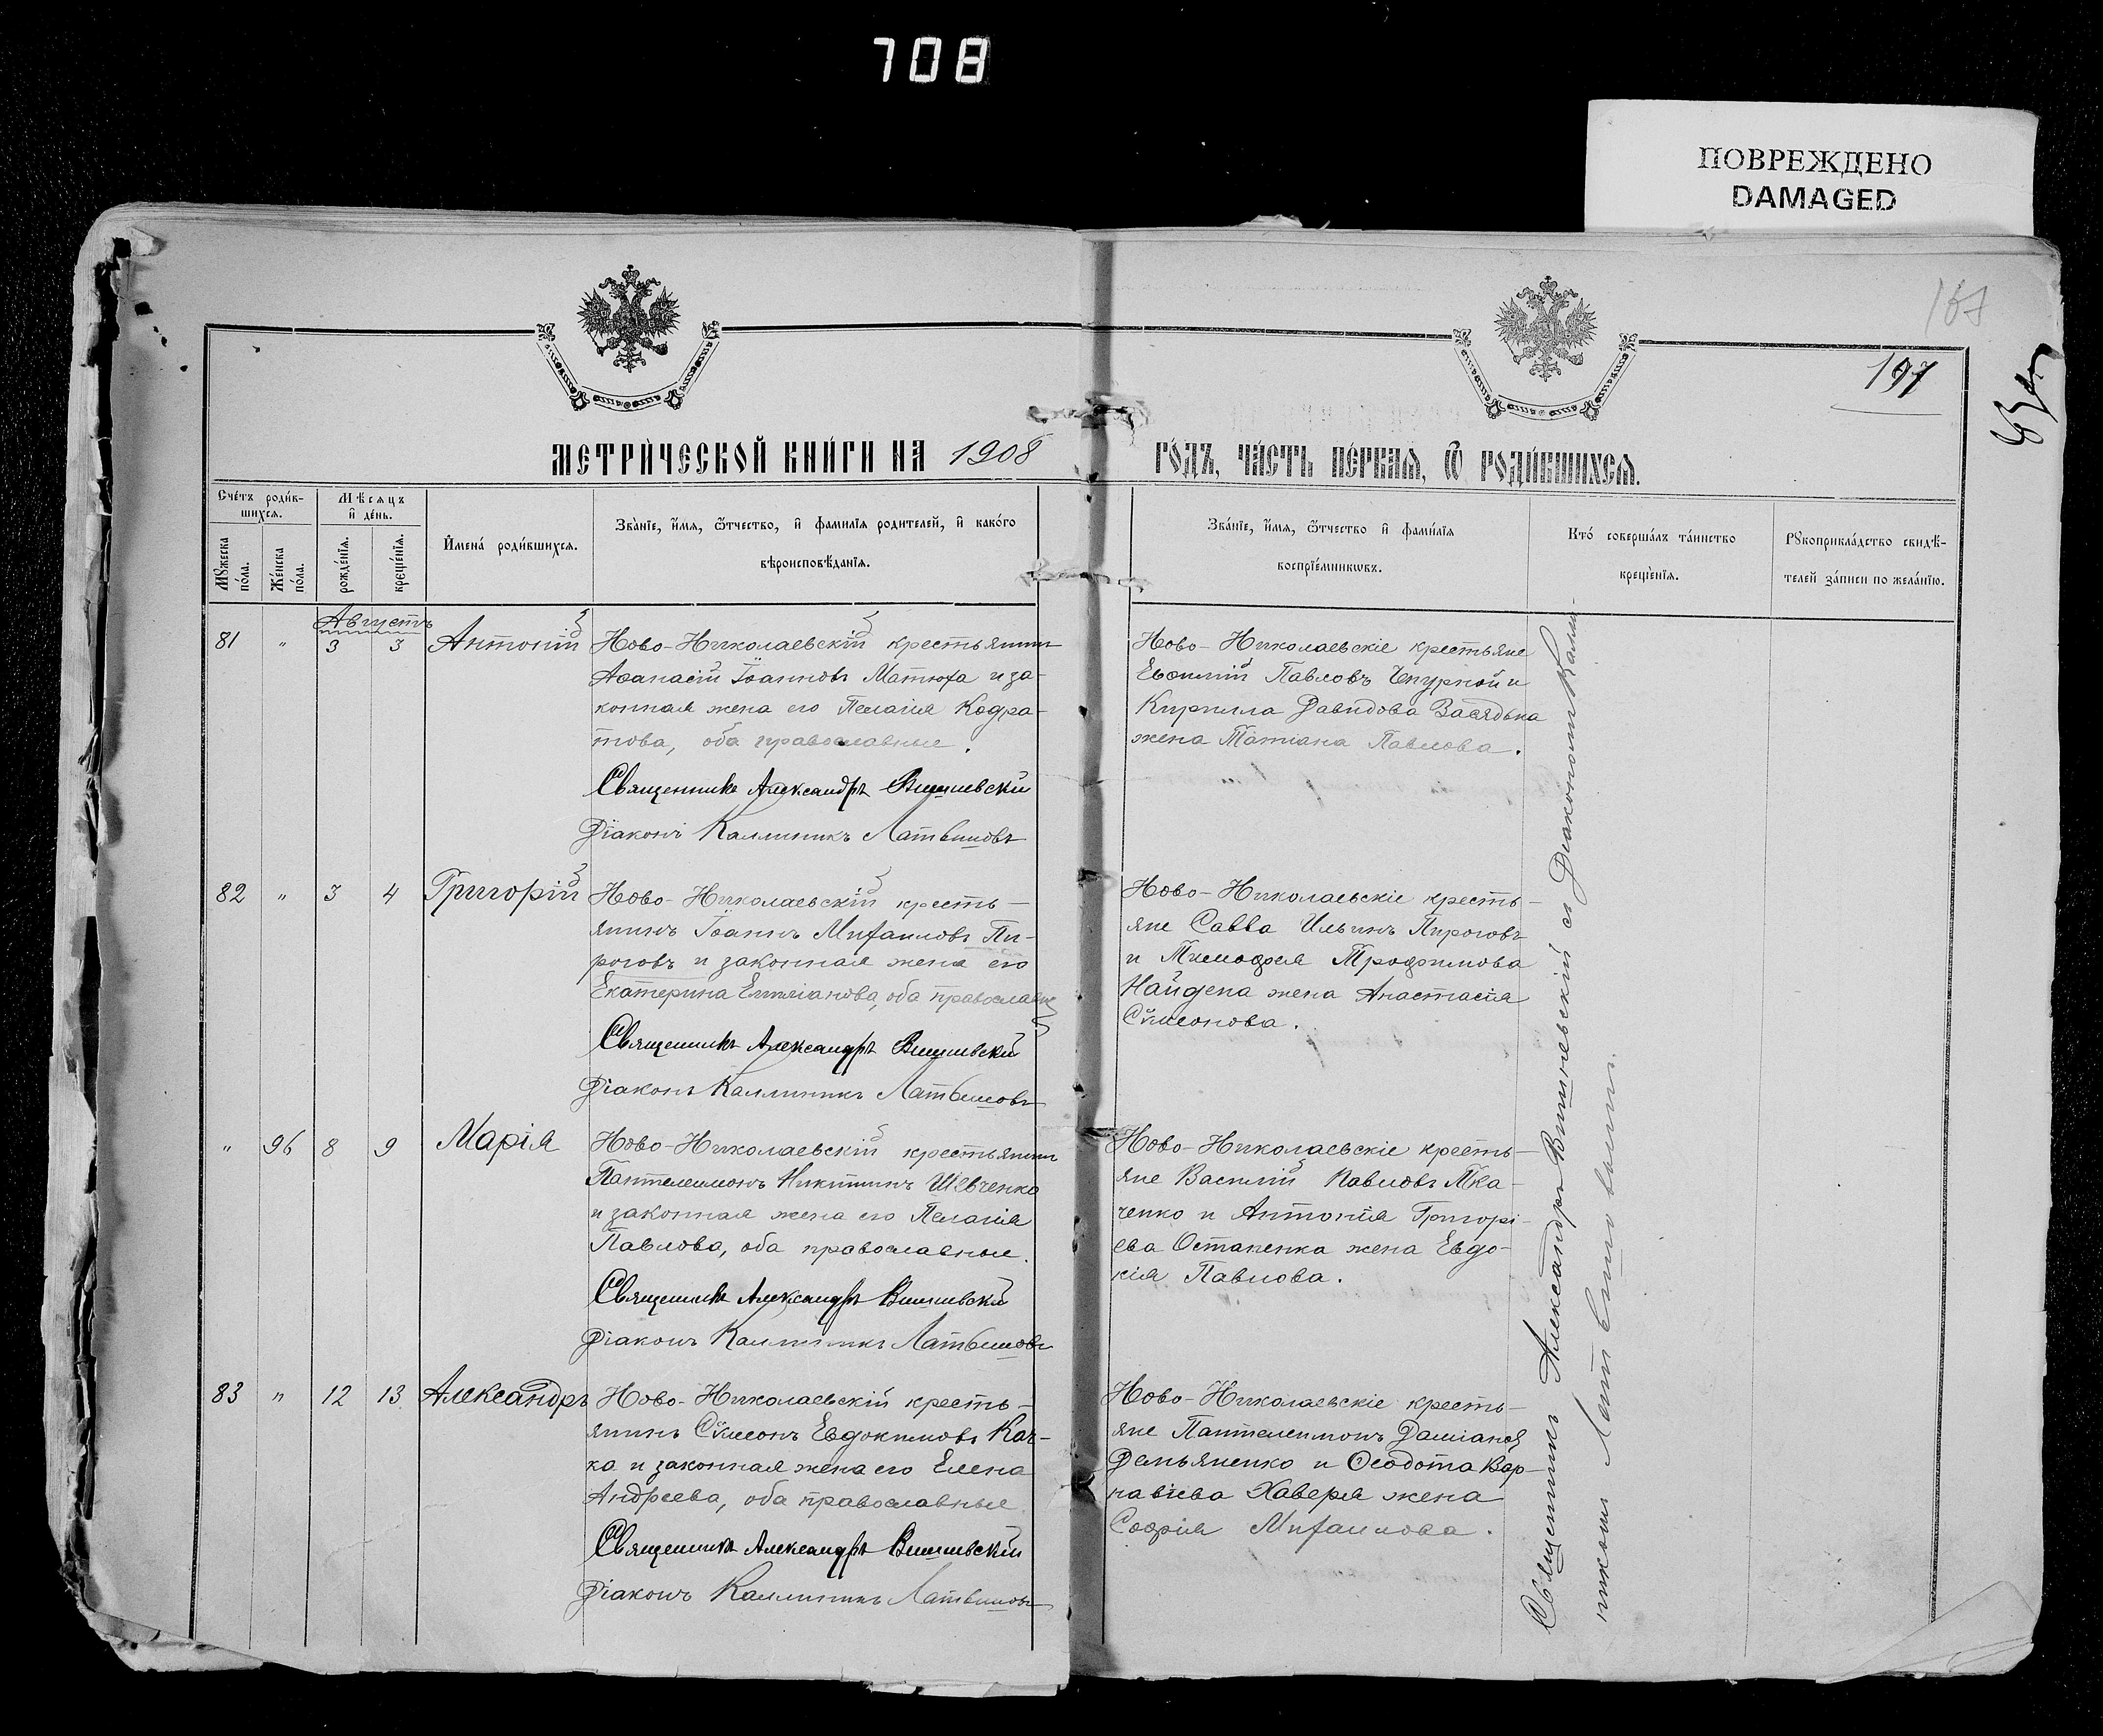 708
ПОВРЕЖДЕНО
DAMAGED
197
МЕТРИ́ЧЕСКОЙ КНИ́ГИ НА 1908
ГО́ДЪ, ЧА́СТЬ ПЕ́РВАЯ, Ѿ РОДИ́ВШИХСЯ.
Сче́тъ роди́в-
шихся.
Мѣсяцъ
и де́нь.
Му́жеска
по́ла.
Же́нска
по́ла.
рожде́нїя.
креще́нїя.
Имена́ роди́вшихся.
Зва́нїе, и́мя, ѿтчество, и фамилїя родителей, и како́го
вѣроисповѣ́данїя.
Зва́нїе, и́мя, ѿтчество и фами́лїя
воспрїе́мникѡвъ.
Кто́ соверша́лъ та́инство
креще́нїя.
Рукоприкла́дство свидѣ́-
телей за́писи по жела́нїю.
Августъ
81 " 3 3 Антоній
Ново-Николаевскій крестьянин
Аѳанасій Іоанновъ Матюха и за-
конная жена его Пелагія Кодра-
това, оба православные.
Священникъ Александръ Вишневскій
Діаконъ Каллиникъ Латвиновъ
Ново-Николаевскіе крестьяне
Евѳимій Павловъ Чепурной и
Кирилла Давидова Засядька
жена Татіана Павлова.
82 " 3 4 Григорій
Ново-Николаевскій кресть-
янинъ Іоаннъ Михаиловъ Пи-
роговъ и законная жена его
Екатерина Емиліанова, оба православные
Священникъ Александръ Вишневскій
Діаконъ Каллиникъ Латвиновъ
Ново-Николаевскіе кресть-
яне Савва Ильинъ Пироговъ
и Тимоѳея Трофимова
Найдена жена Анастасія
Сѵмеонова.
" 96 8 9 Марія
Ново-Николаевскій крестьянин
Пантелеимонъ Никитинъ Шевченко
и законная жена его Пелагія
Павлова, оба православные.
Священникъ Александръ Вишневскій
Діаконъ Каллиникъ Латвиновъ
Ново-Николаевскіе кресть-
яне Василій Павловъ Тка-
ченко и Антонія Григорі-
ева Остапенка жена Евдо-
кія Павлова.
83 " 12 13 Александръ
Ново-Николаевскій кресть-
янинъ Сѵмеонъ Евдокимовъ Кач-
ка и законная жена его Елена
Андреева, оба православные
Священникъ Александръ Вишневскій
Діаконъ Каллиникъ Латвиновъ
Ново-Николаевскіе кресть-
яне Пантелеимонъ Даміановъ
Демьяненко и Ѳеодота Вар-
навіева Хаверя жена
Софія Михаилова.
Священникъ Александръ Вишневскій съ Діакономъ Калли-
никомъ Латвиновымъ.